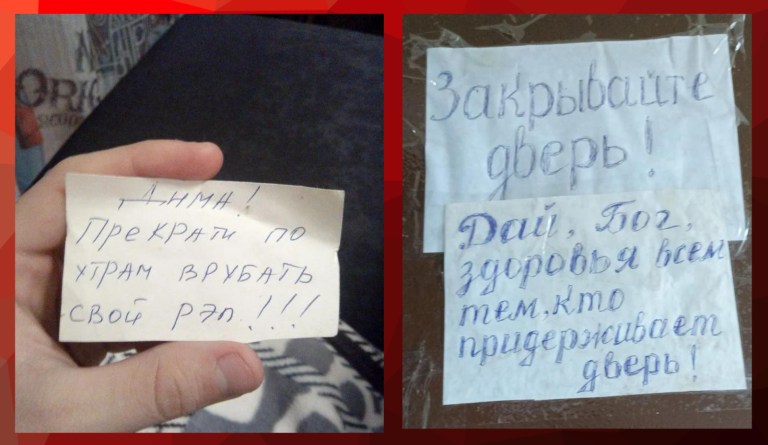 Дима!
Прекрати по
утрам врубать
свой рэп!!!
Закрывайте
дверь!
Дай, Бог,
здоровья всем
тем, кто
придерживает
дверь!